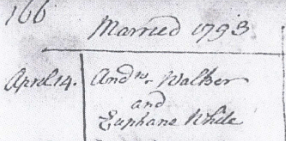 166
Married 1793
April 14. Andw. Walker
and
Euphane White